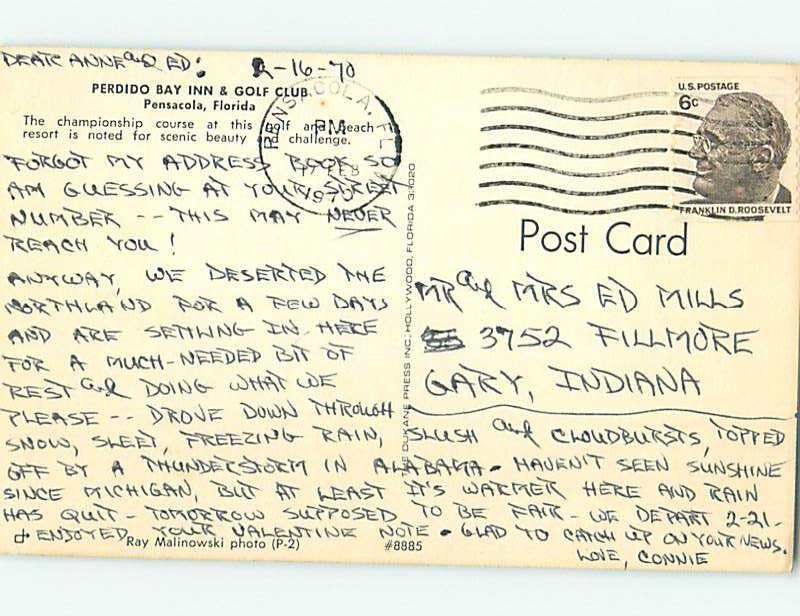 DEAR ANNE and ED: 2-16-70
PERDIDO BAY INN & GOLF CLUB
Pensacola, Florida
The championship course at this golf and beach
resort is noted for scenic beauty and challenge.
FORGOT MY ADDRESS BOOK SO
AM GUESSING AT YOUR STREET
NUMBER -- THIS MAY NEVER
REACH YOU!
ANYWAY, WE DESERTED THE
NORTHLAND FOR A FEW DAYS
AND ARE SETTLING IN HERE
FOR A MUCH-NEEDED BIT OF
REST and DOING WHAT WE
PLEASE -- DROVE DOWN THROUGH
SNOW, SLEET, FREEZING RAIN, SLUSH and CLOUDBURSTS, TOPPED
OFF BY A THUNDERSTORM IN ALABAMA - HAVEN'T SEEN SUNSHINE
SINCE MICHIGAN, BUT AT LEAST IT'S WARMER HERE AND RAIN
HAS QUIT - TOMORROW SUPPOSED TO BE FAIR - WE DEPART 2-21-
+ ENJOYED YOUR VALENTINE NOTE - GLAD TO CATCH UP ON YOUR NEWS.
LOVE, CONNIE
Ray Malinowski photo (P-2)
#8885
THE DUKANE PRESS INC, HOLLYWOOD, FLORIDA 33020
PENSACOLA, FL
PM
17 FEB
1970
U.S. POSTAGE
6c
FRANKLIN D. ROOSEVELT
Post Card
MR and MRS ED MILLS
3752 FILLMORE
GARY, INDIANA